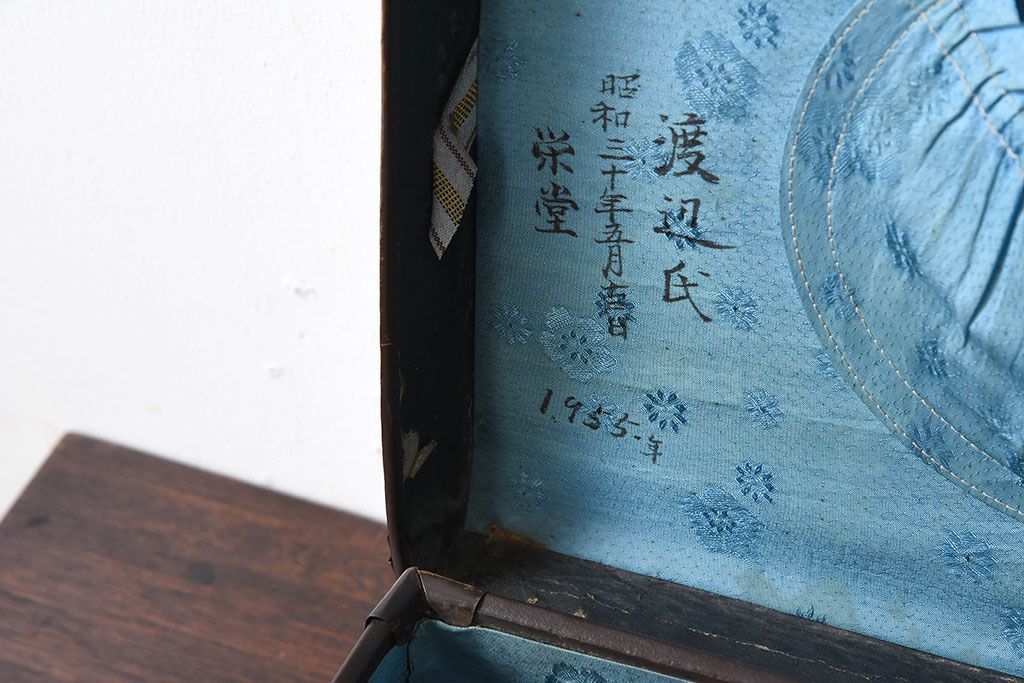 渡辺氏
昭和三十年五月吉日
栄堂
1955年